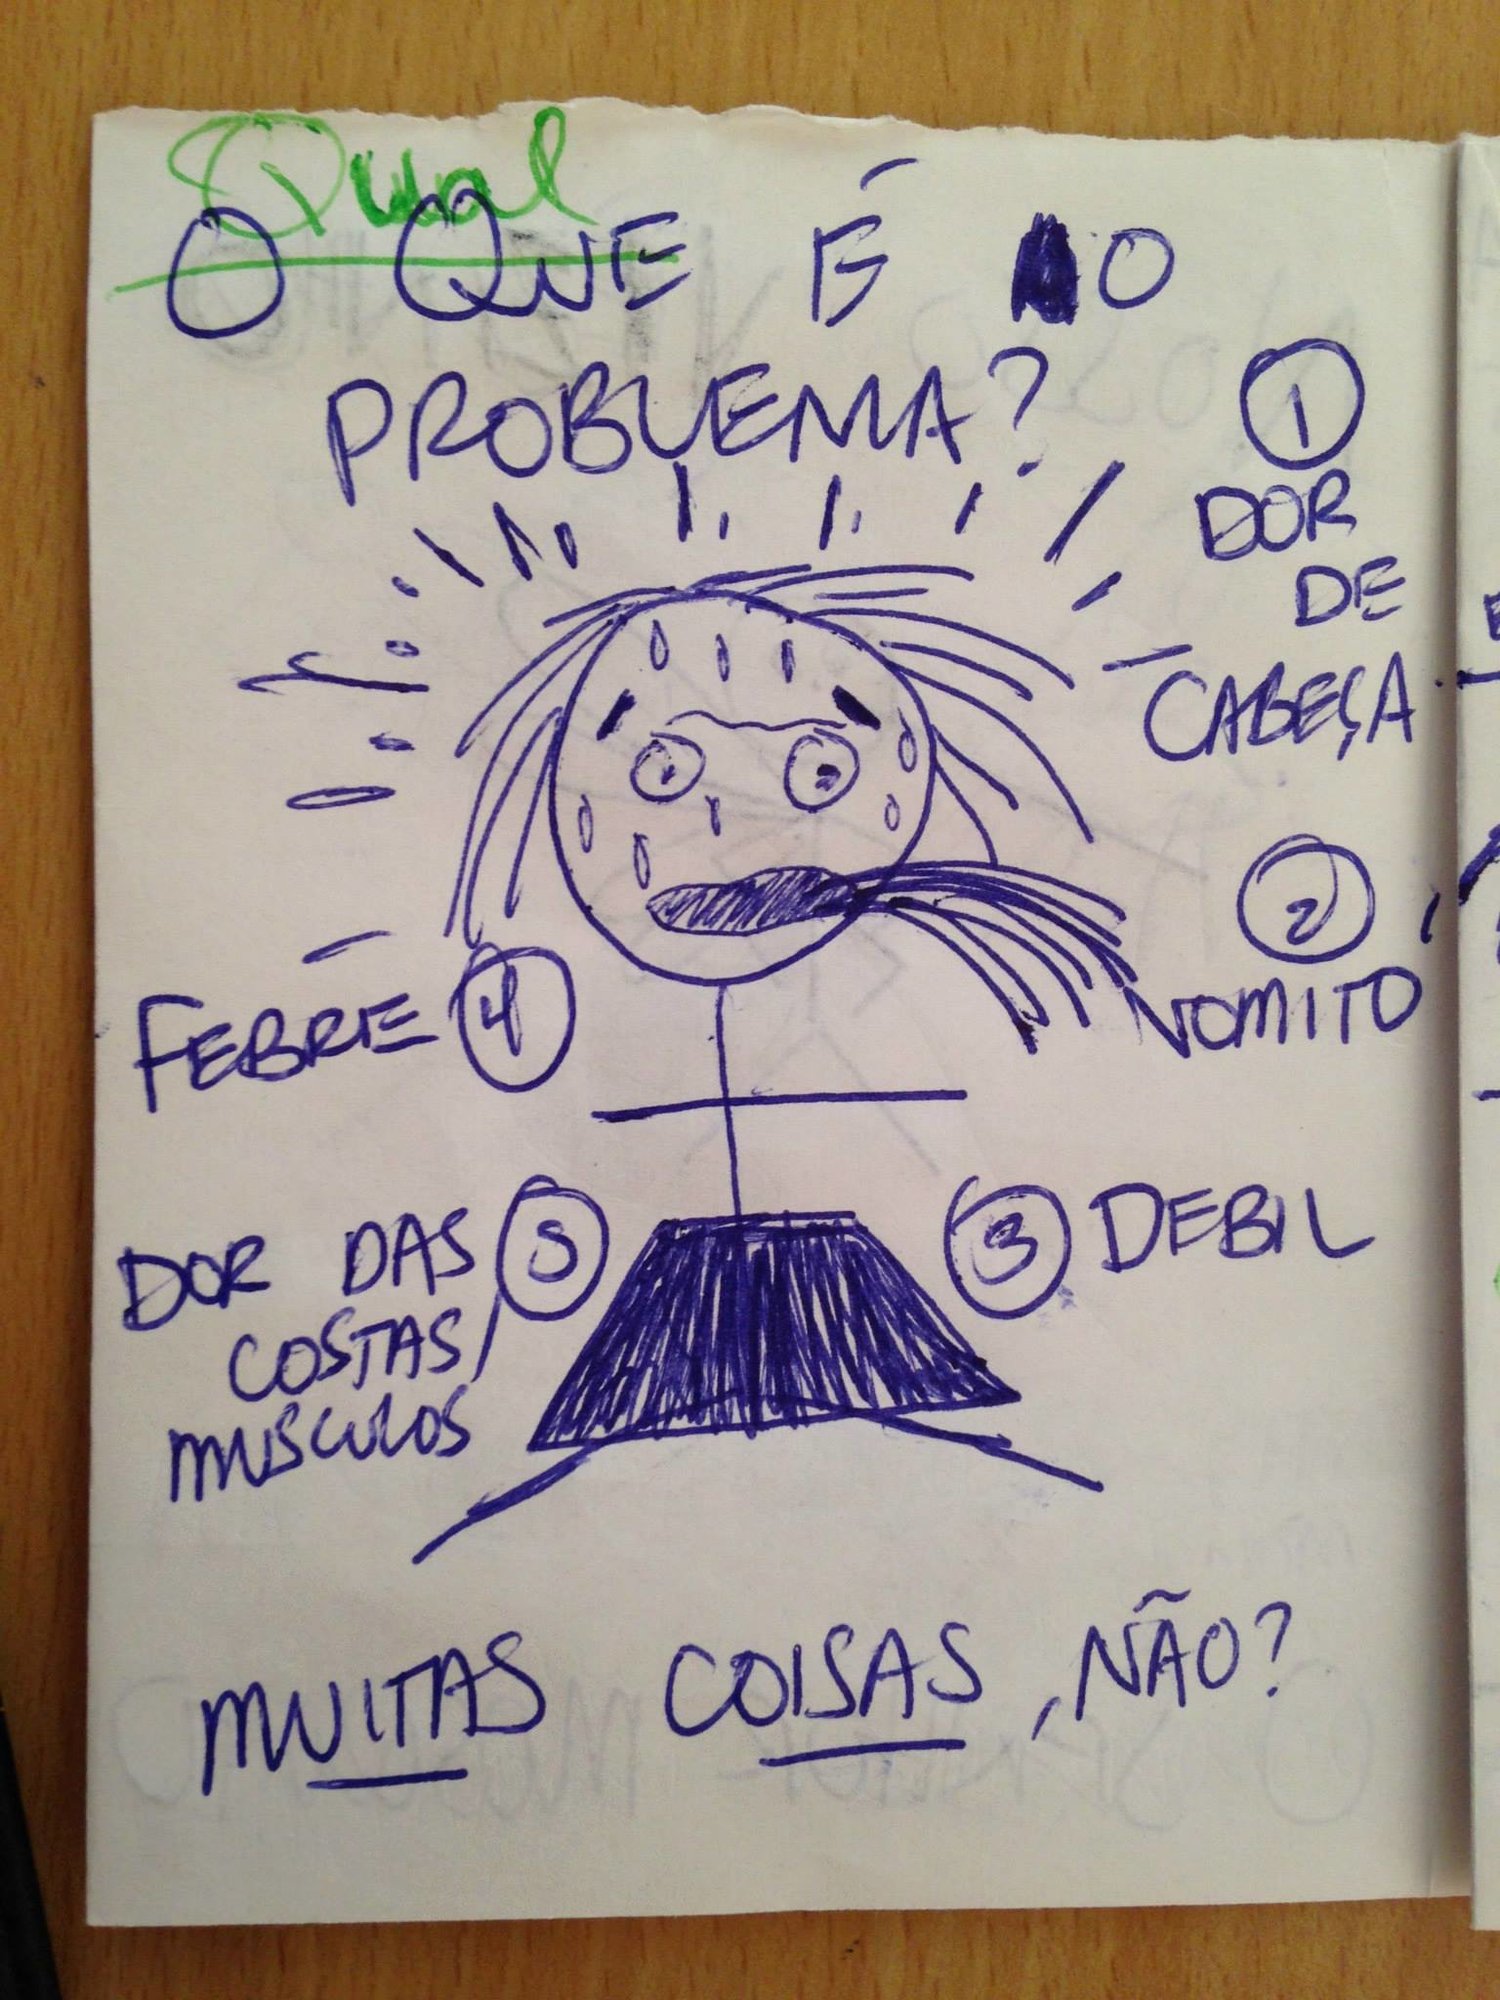 Qual
O QUE É O
PROBLEMA?
1
DOR
DE
CABEÇA
2
VOMITO
FEBRE 4
3 DEBIL
DOR DAS 5
COSTAS/
MUSCULOS
MUITAS COISAS, NÃO?